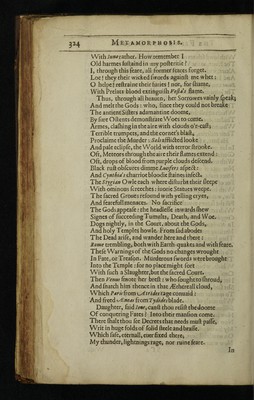 324 METAMORPHOSIS.
With innovator. How remember I
Old harmes sustaind in my posteritie!
I, through this feare, all former feares forget.
Lo! they their wicked swords against me whet:
O helpe! restraine their furies! nor, for shame,
With Prelate blood extinguish Vesta's flame.
Thus, through all heaven, her Sorrowes vainly speak;
And melt the Gods: who, since they could not breake
The ancient Sisters adamantine doome,
By sure Ostents demonstrate Woes to come.
Armes, clashing in the aire with clouds o're-cast;
Terrible trumpets, and the cornet's blast,
Proclaime the Murder: Sols afflicted looke
And pale eclipse, the World with terror strooke.
Oft, Meteors through the aire their flames extend:
Oft, drops of blood from purple clouds descend.
Black rust obscures dimme Lucifers aspect:
And Cynthia's chariot bloodie staines infect.
The Stygian Owle each where disturbs their sleepe
With ominous screeches: ivorie Statues weepe.
The sacred Groues resound with yelling cryes,
And fearefull menaces. No sacrifice
The Gods appease: the headlesse inwards shew
Signes of succeeding Tumults, Death, and Woe.
Dogs nightly, in the Court, about the Gods,
And holy Temples howle. From sad abodes
The Dead arise, and wander here and there:
Rome trembling, both with Earth-quakes and with feare.
These Warnings of the Gods no changes wrought
In Fate, or Treason. Murderous swords were brought
Into the Temple: for no place might sort
With such a Slaughter, but the sacred Court.
Then Venus smote her brest: who sought to shrowd,
And snatch him thence in that Æthereall cloud,
Which Paris from Atrides rage conuaid:
And freed Æneas from Tydides blade.
Daughter, said Ioue, canst thou resist the doome
Of conquering Fates? Into their mansion come.
There shalt thou see Decrees that needs must passe,
Writ in huge folds of solid steele and brasse.
Which safe, eternall, ever fixed there,
My thunder, lightnings rage, nor ruine feare.
In